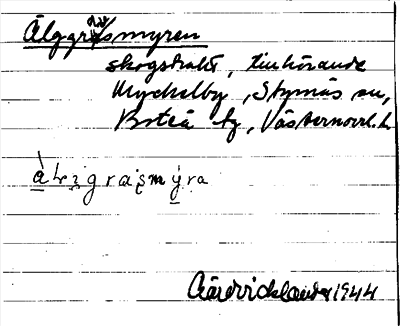 Älggräsmyren
skogstrakt, tillhörande
Myckelby, Styrnäs sn,
Boteå tg, Västernorrl. l.
àlʒgrasmýra
1944